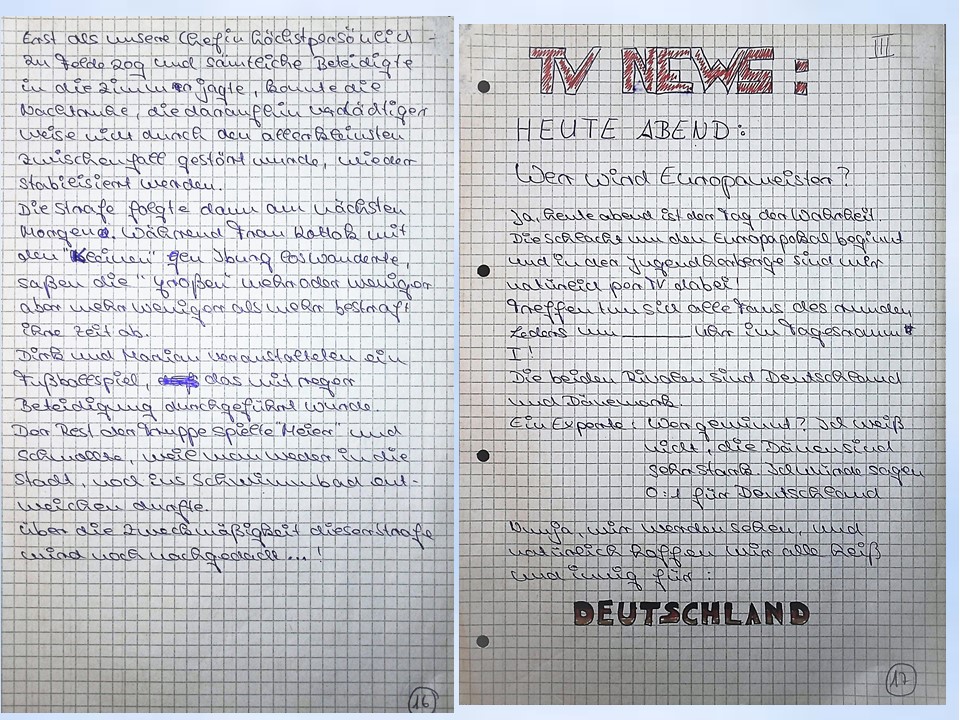 Erst als unsere Chefin höchstpersönlich
zu Felde zog und sämtliche Beteidigte
in die Zimmer jagte, konnte die
Nachtruhe, die daraufhin verdächtiger
weise nicht durch den allerkleinsten
Zwischenfall gestört wurde, wieder
stabilisiert werden.
Die Strafe folgte dann am nächsten
Morgen. Während Frau mit
den "Kleinen" gen Iburg loswanderte,
saßen die "Großen" mehr oder weniger
aber mehr weniger als mehr bestraft
ihre Zeit ab.
Dirk und Marian veranstalteten ein
Fußballspiel, das mit reger
Beteidigung durchgeführt wurde.
Der Rest der Truppe spielte "Meier" und
schmollte, weil man weder in die
Stadt, noch ins Schwimmbad ent-
weichen durfte.
Über die Zweckmäßigkeit dieser Strafe
wird noch nachgedacht ... !
16
III
TV NEWS:
HEUTE ABEND:
Wer wird Europameister?
Ja, heute abend ist der Tag der Wahrheit.
Die Schlacht um den Europapokal beginnt
und in der Jugendherberge sind wir
natürlich per TV dabei!
Treffen tun sich alle Fans des runden
Leders um ______ Uhr im Tagesraum
I!
Die beiden Rivalen sind Deutschland
und Dänemark.
Ein Experte: Wer gewinnt? Ich weiß
nicht, die Dänen sind
sehr stark. Ich würde sagen
0:1 für Deutschland
Nunja, wir werden sehen, und
natürlich hoffen wir alle heiß
und innig für:
DEUTSCHLAND
17